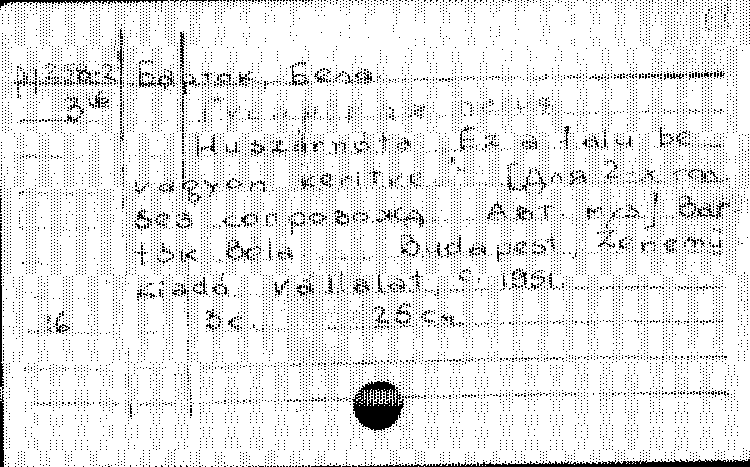 М 258:2 Барток, Бела
3 16
Huszárnóta „Ez a falu be
vagyon kerítve“. [Для 2-х гол.
без сопровожд. Авт. муз.] Bar
tók Béla. Budapest, Zenemü
kiadó vállalat, c. 1951.
16 3 с. 25 см.